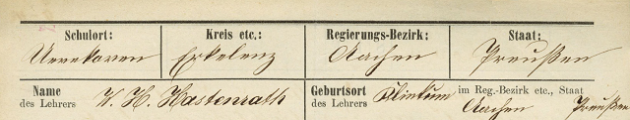 Schulort: Kreis etc.: Regierungs-Bezirk: Staat:
Uevekoven Erkelenz Aachen Preußen
Name W. H. Hastenrath Geburtsort im Reg.-Bezirk etc., Staat
des Lehrers des Lehrers Aachen Preußen